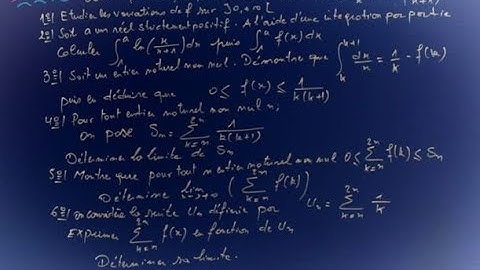 1°) Etudier les variations de f sur ]0, +∞[
2°) Soit a un réel strictement positif. A l'aide d'une integration par partie
calculer ∫_1^a ln(x/(x+1)) dx puis ∫_1^a f(x) dx
3°) Soit k un entier naturel non nul. Démontrer que ∫_k^{k+1} dx/x = 1/k - f(k)
puis en déduire que 0 ≤ f(x) ≤ 1/(k(k+1))
4°) Pour tout entier naturel non nul n;
on pose Sn = ∑_{k=n}^{2n} 1/(k(k+1))
Déterminer la limite de Sn
5°) Montrer que pour tout n entier naturel non nul 0 ≤ ∑_{k=n}^{2n} f(k) ≤ Sn
Détermine lim_{n→+∞} (∑_{k=n}^{2n} f(k))
6°) on considère la suite Un définie par Un = ∑_{k=n}^{2n} 1/k
Exprimer ∑_{k=n}^{2n} f(x) en fonction de Un
Déterminer sa limite.